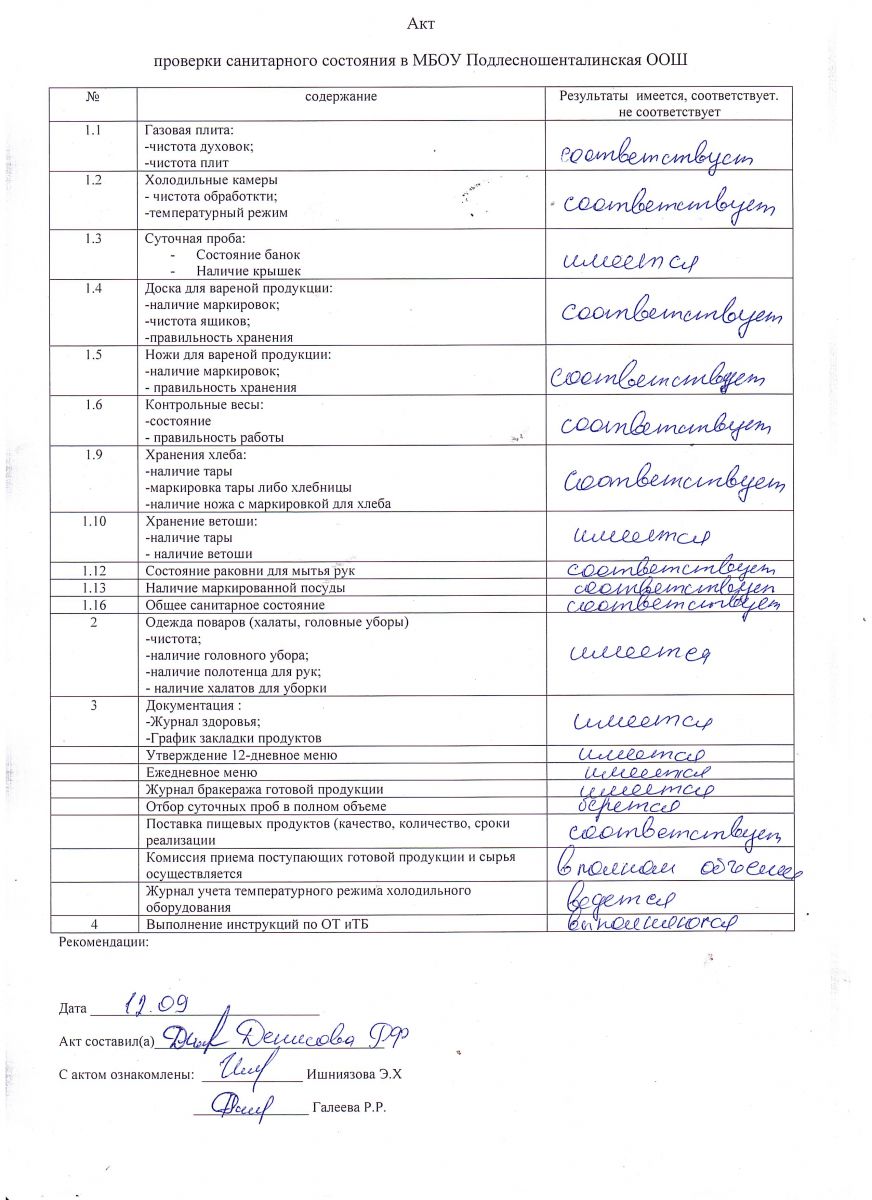 Акт
проверки санитарного состояния в МБОУ Подлесношенталинская ООШ
№ содержание Результаты имеется, соответствует.
не соответствует
1.1 Газовая плита:
-чистота духовок;
-чистота плит соответствует
1.2 Холодильные камеры
- чистота обработкти; соответствует
-температурный режим
1.3 Суточная проба:
- Состояние банок имеется
- Наличие крышек
1.4 Доска для вареной продукции:
-наличие маркировок; соответствует
-чистота ящиков;
-правильность хранения
1.5 Ножи для вареной продукции:
-наличие маркировок; соответствует
- правильность хранения
1.6 Контрольные весы:
-состояние соответствует
- правильность работы
1.9 Хранения хлеба:
-наличие тары
-маркировка тары либо хлебницы соответствует
-наличие ножа с маркировкой для хлеба
1.10 Хранение ветоши:
-наличие тары имеется
- наличие ветоши
1.12 Состояние раковни для мытья рук соответствует
1.13 Наличие маркированной посуды соответствует
1.16 Общее санитарное состояние соответствует
2 Одежда поваров (халаты, головные уборы)
-чистота;
-наличие головного убора; имеется
-наличие полотенца для рук;
- наличие халатов для уборки
3 Документация :
-Журнал здоровья; имеется
-График закладки продуктов
Утверждение 12-дневное меню имеется
Ежедневное меню имеется
Журнал бракеража готовой продукции имеется
Отбор суточных проб в полном объеме берется
Поставка пищевых продуктов (качество, количество, сроки соответствует
реализации
Комиссия приема поступающих готовой продукции и сырья в полном объеме
осуществляется
Журнал учета температурного режима холодильного ведется
оборудования
4 Выполнение инструкций по ОТ иТБ выполняются
Рекомендации:
Дата 12.09
Акт составил(а) Денисова РФ
С актом ознакомлены: Ишниязова Э.Х
Галеева Р.Р.